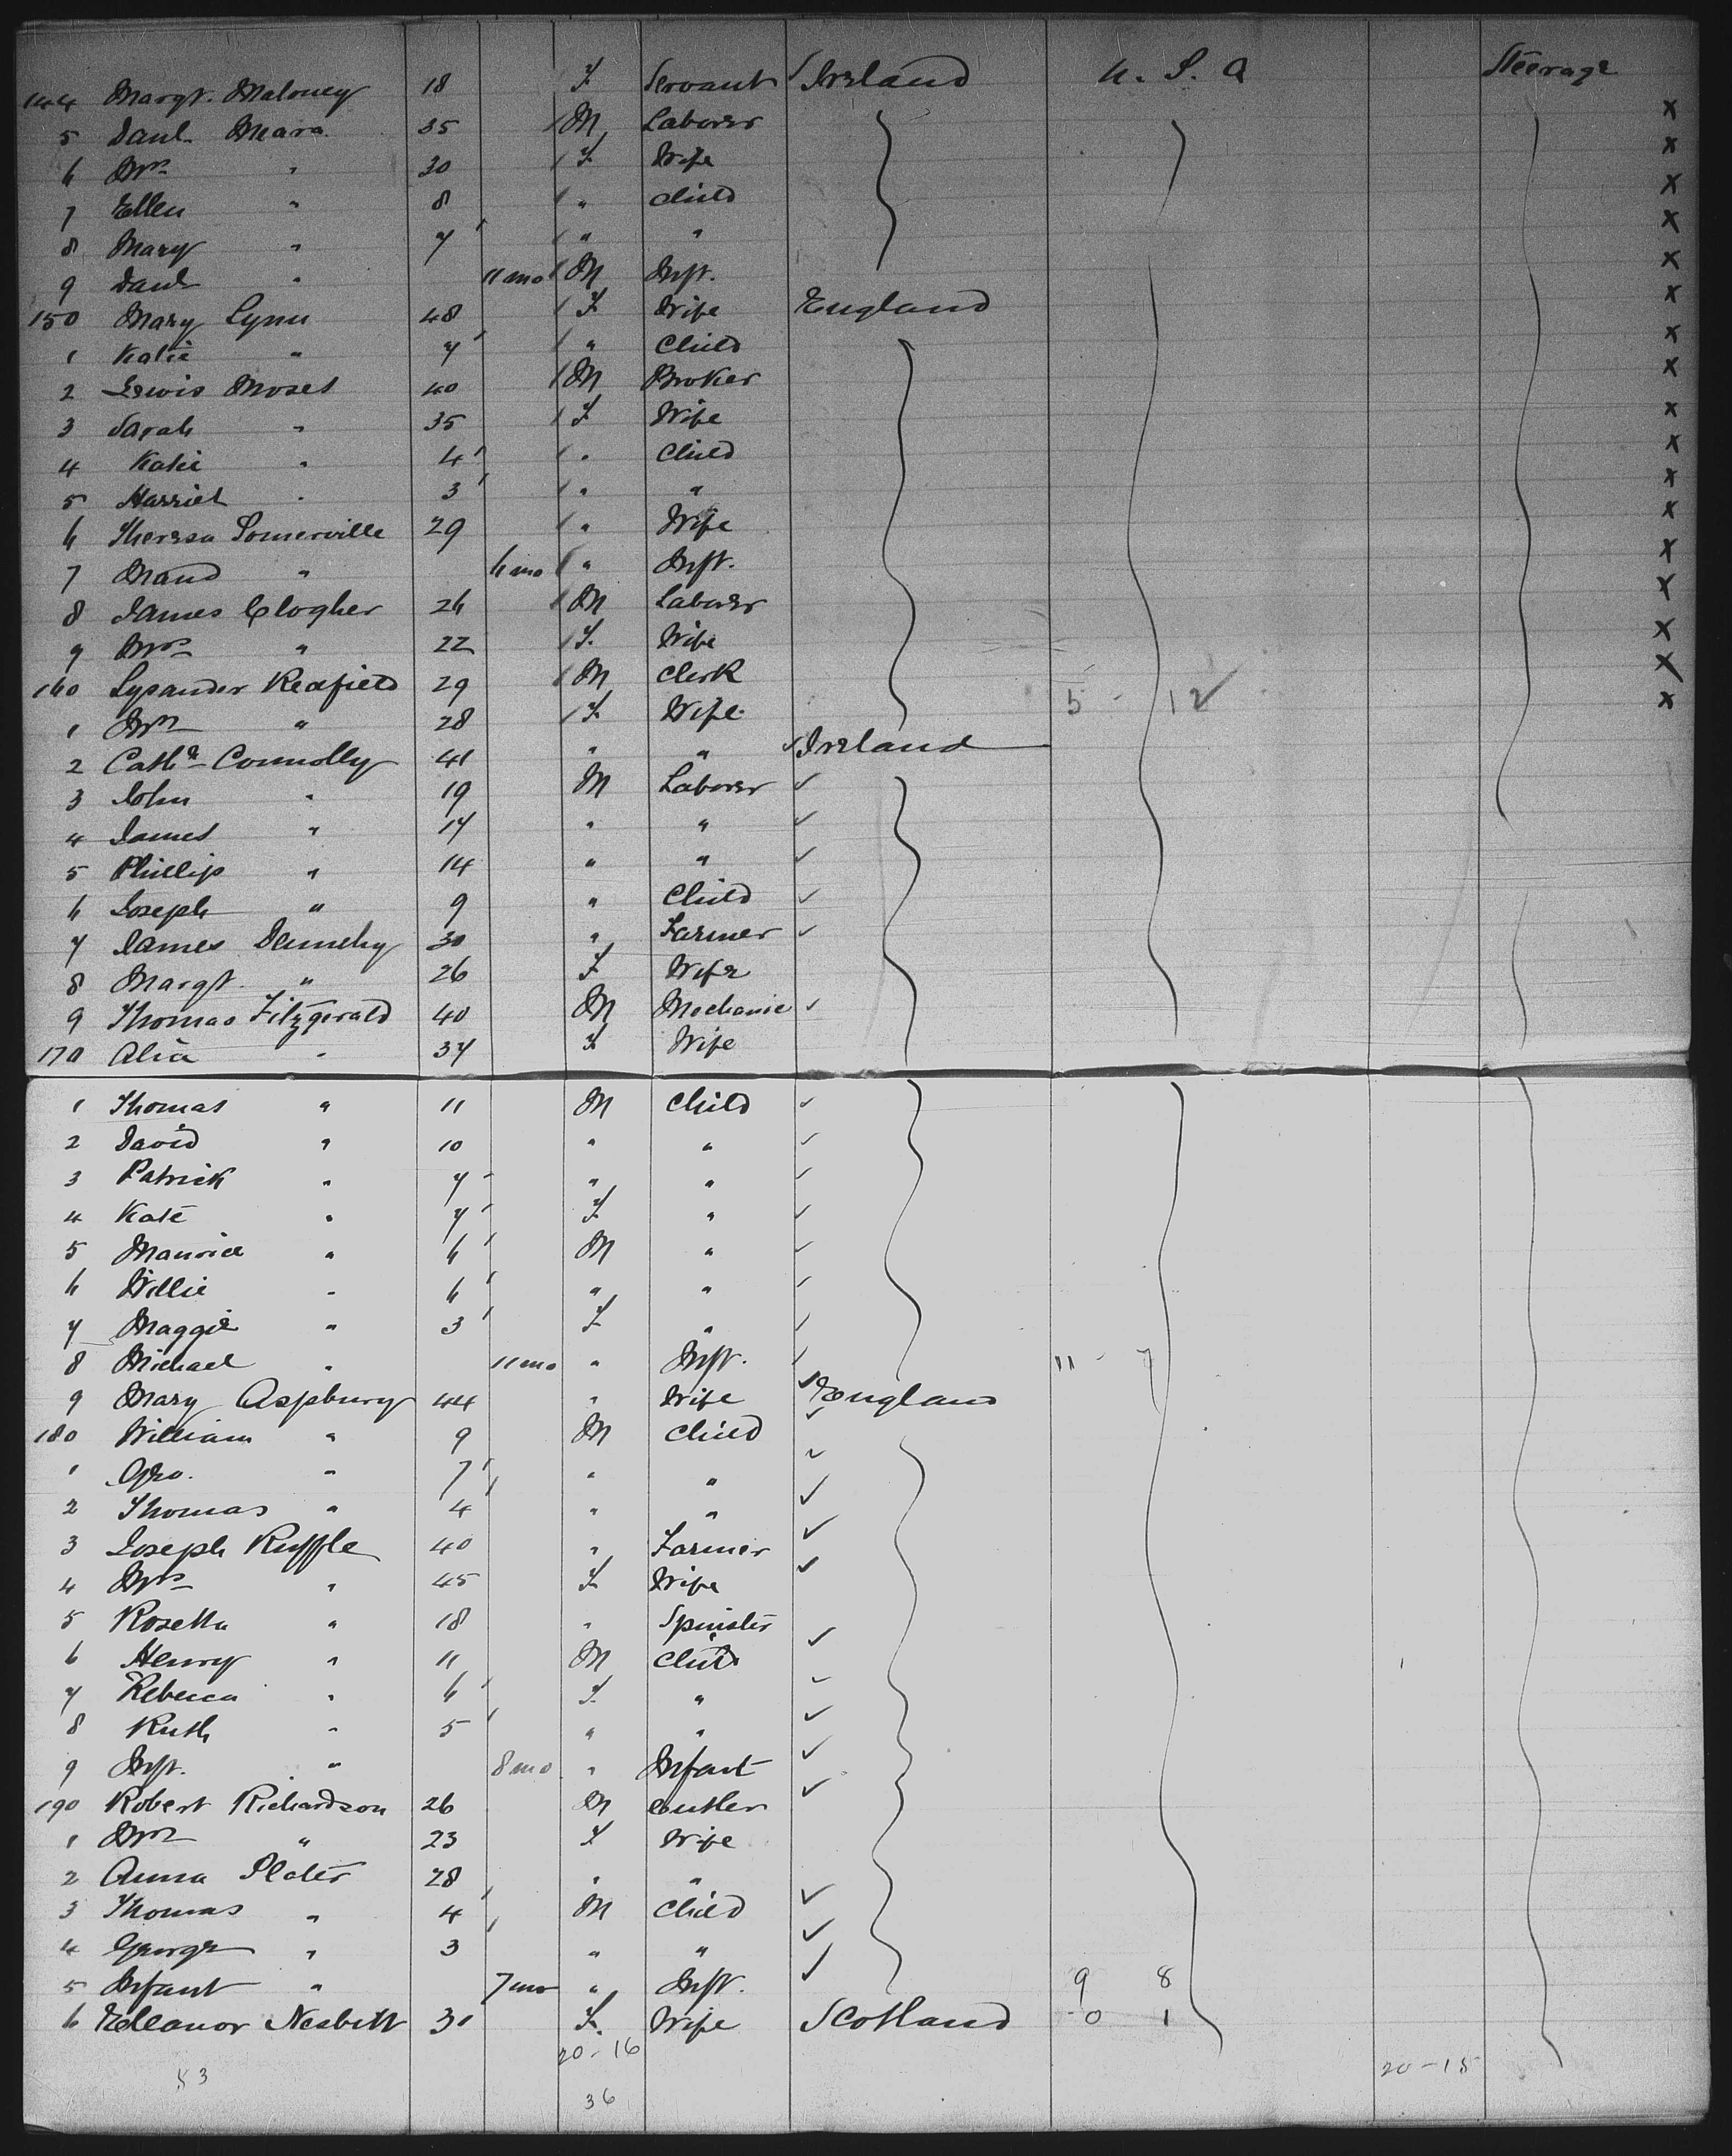 144 Margt. Maloney 18 F Servant ✓ Ireland U. S. A Steerage
5 Danl. Meara 35 M Laborer x
6 Mrs " 30 F Wife x
7 Ellen " 8 " Child x
8 Mary " 7 " " x
9 Danl " 11 mo M Inft. x
150 Mary Lynn 48 F Wife England x
1 Katie " 7 " Child x
2 Lewis Moses 40 M Broker x
3 Sarah " 35 F Wife x
4 Katie " 4 " Child x
5 Harriet " 3 " " x
6 Theresa Somerville 29 " Wife x
7 Maud " 6 mo " Inft. x
8 James Clogher 26 M Laborer x
9 Mrs " 22 F. Wife x
160 Lysander Redfield 29 M Clerk 5 - 12 ✓ x
1 Mrs " 28 F Wife x
2 Cathe Connolly 41 " " ✓ Ireland
3 John " 19 M Laborer ✓
4 James " 17 " " ✓
5 Phillip " 14 " " ✓
6 Joseph " 9 " Child ✓
7 James 30 " Farmer ✓
8 Margt. " 26 F Wife
9 Thomas Fitzgerald 40 M Mechanic ✓
170 " 37 F Wife
1 Thomas " 11 M Child ✓
2 David " 10 " " ✓
3 Patrick " 7 " " ✓
4 Kate " 7 F " ✓
5 Maurice " 6 M " ✓
6 Willie " 6 " " ✓
7 Maggie " 3 F " ✓
8 Michael " 11 mo " Inft. ✓ 11 - 7
9 Mary Aspbury 44 " Wife ✓ England
180 William " 9 M Child ✓
1 Geo. " 7 " " ✓
2 Thomas " 4 " " ✓
3 Joseph Ruffle 40 " Farmer ✓
4 Mrs " 45 F Wife ✓
5 Rosetta " 18 " Spinster
6 Henry " 11 M Child ✓
7 Rebecca " 6 F " ✓
8 Ruth " 5 " " ✓
9 Inft. " 8 mo " Infant ✓
190 Robert Richardson 26 M Cutler ✓
1 Mrs " 23 F Wife
2 Anna Plater 28 " "
3 Thomas " 4 M Child ✓
4 George " 3 " " ✓
5 Infant " 7 mo " Inft. ✓ 9 8
6 Elleanor Nesbitt 31 F. Wife Scotland 0 1
20 - 16 20 - 15
53 36